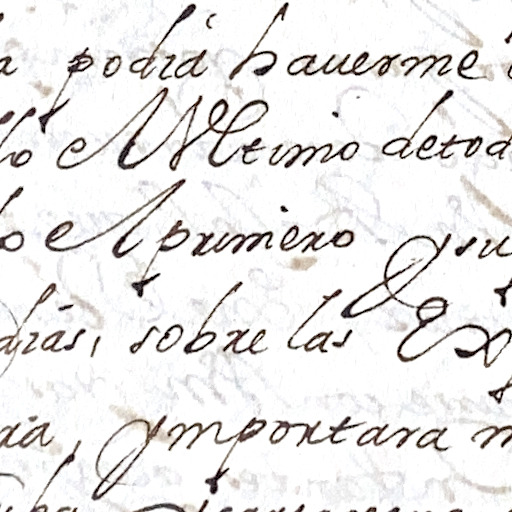 a podiá hauerme
lo el Vltimo detod
lo el primero, ysu
diás, sobre las Ex
ria, ymportara m